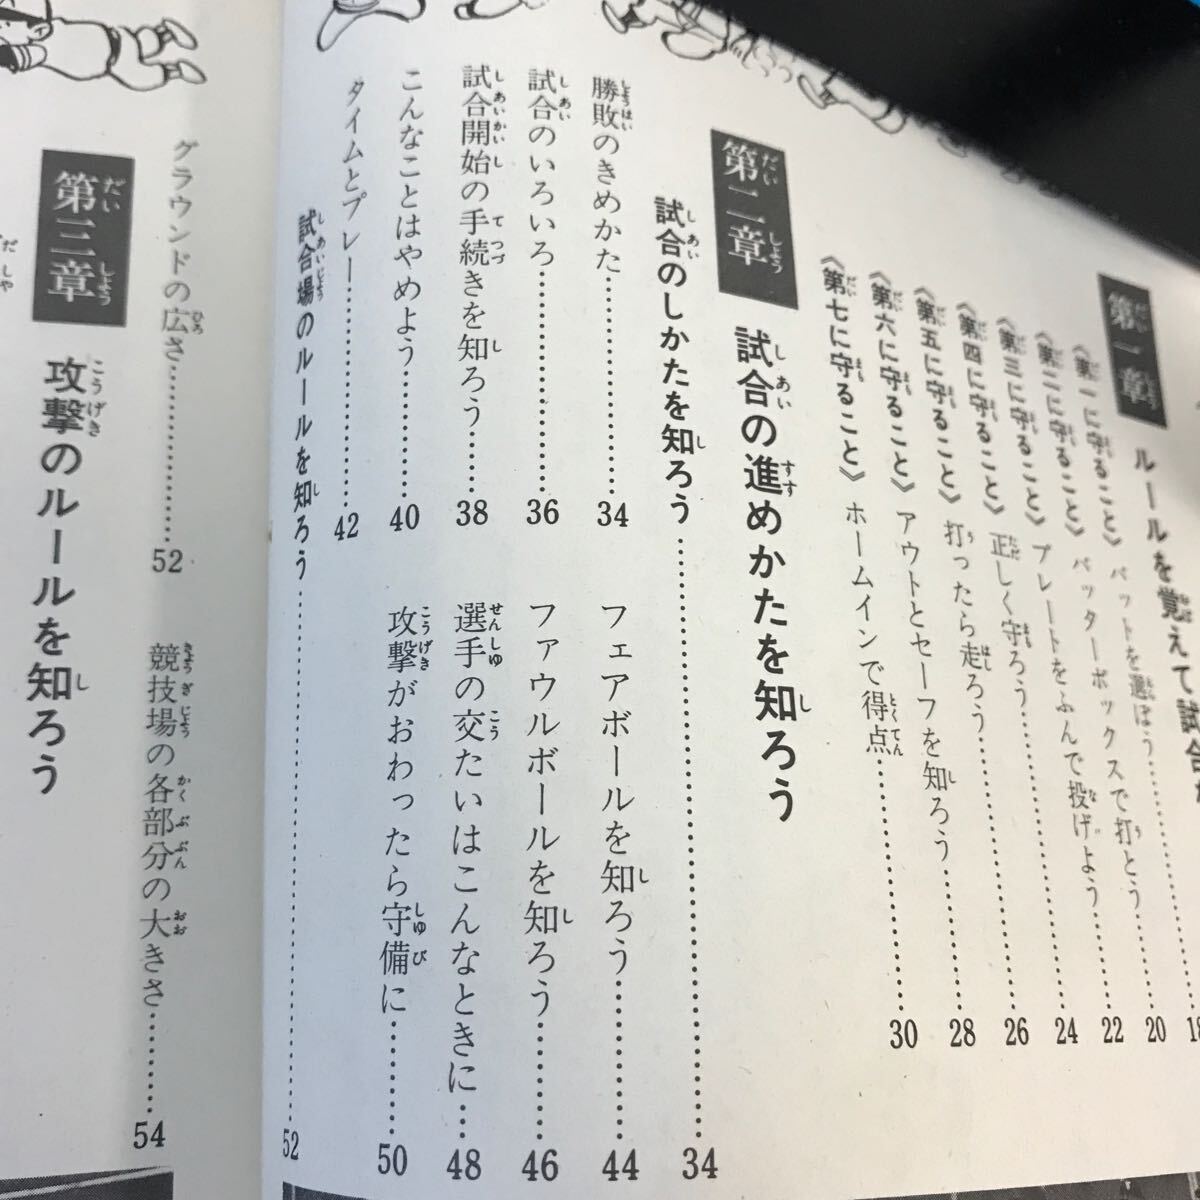 第一章 ルールを覚えて試合
《第一に守ること》 バットを選ぼう
18
《第二に守ること》 バッターボックスで打とう
20
《第三に守ること》 プレートをふんで投げよう
22
《第四に守ること》 正しく守ろう
24
《第五に守ること》 打ったら走ろう
26
《第六に守ること》 アウトとセーフを知ろう
28
《第七に守ること》 ホームインで得点
30
第二章 試合の進めかたを知ろう
試合のしかたを知ろう 34
勝敗のきめかた 34
フェアボールを知ろう 44
試合のいろいろ 36
ファウルボールを知ろう 46
試合開始の手続きを知ろう 38
選手の交たいはこんなときに 48
こんなことはやめよう 40
攻撃がおわったら守備に 50
タイムとプレー 42
試合場のルールを知ろう 52
グラウンドの広さ 52
競技場の各部分の大きさ 54
第三章 攻撃のルールを知ろう